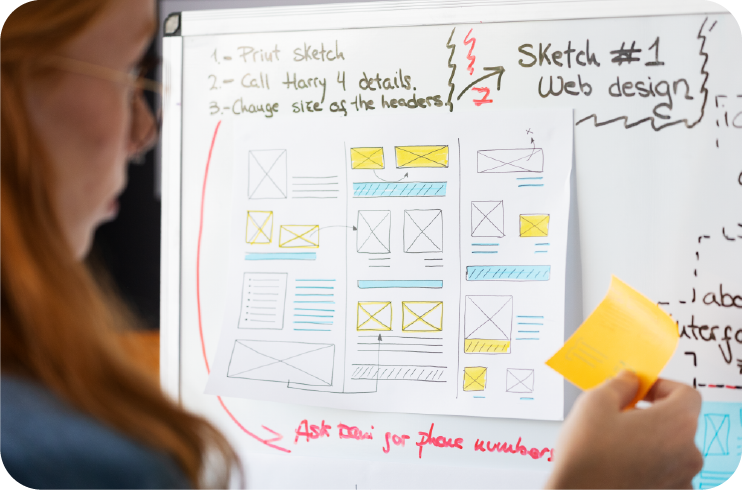 1.- Print sketch
2.- Call Harry 4 details.
3.- Change size of the headers.
Sketch #1
Web design
Ask for phone numbers